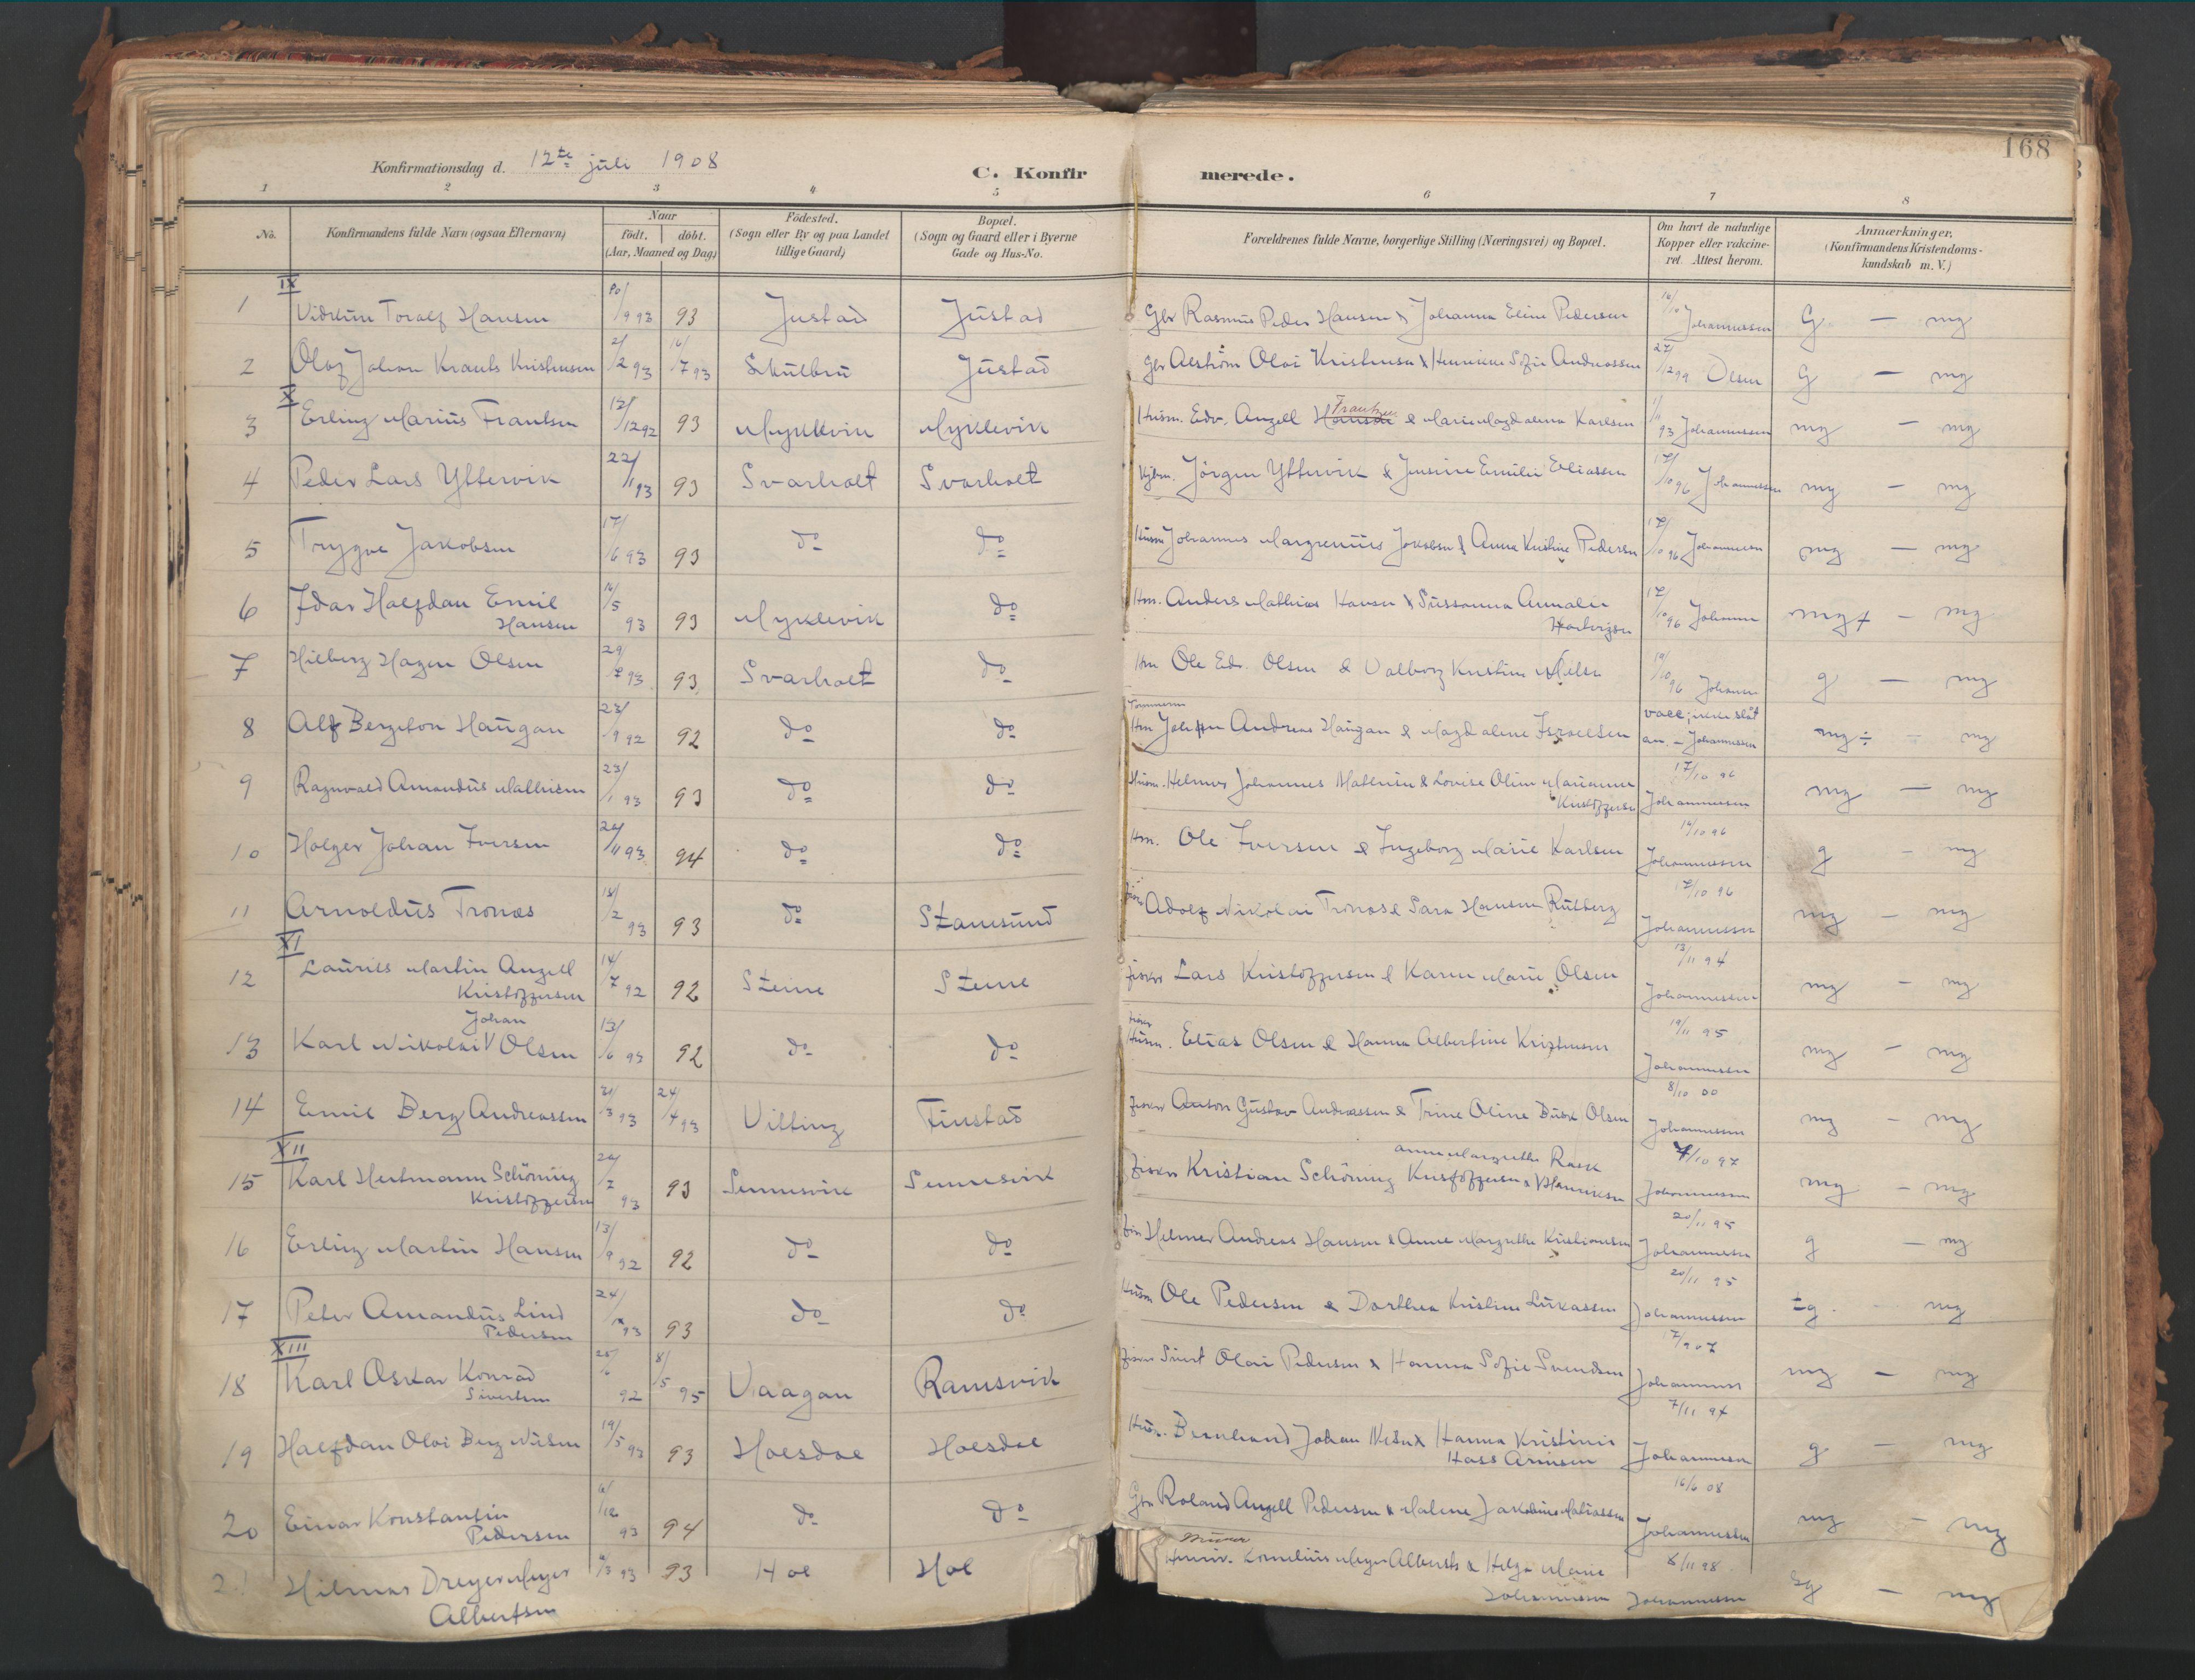 168
Konfirmationsdag d. 12te juli 1908
C. Konfirmerede.
1 2 3 4 5 6 7 8
No. Konfirmandens fulde Navn (ogsaa Efternavn) Naar födt. döbt. (Aar, Maaned og Dag) Födested. (Sogn eller By og paa Landet tillige Gaard) Bopæl. (Sogn og Gaard eller i Byerne Gade og Hus-No. Forældrenes fulde Navne, borgerlige Stilling (Næringsvei) og Bopæl. Om havt de naturlige Kopper eller vakcineret. Attest herom. Anmærkninger. (Konfirmandens Kristendomskundskab m. V.)
IX
1 Vidkun Toralf Hansen 20/9 93 93 Justad Justad Gbr Rasmus Peder Hansen & Johanna Eline Pedersen Johannessen G — mg
2 Olaf Johan Krants Kristensen 2/2 93 16/7 93 Skulbru Justad Gbr Alström Olai Kristensen & Henrikke Sofie Andreassen 27/12 99 Olsen G — mg
X
3 Erling Marius Frantsen 12/12 92 93 Myklevik Myklevik Husm. Edv. Angell Hansen Frantzen & Marie Magdalena Karlsen 93 Johannessen mg — mg
4 Peder Lars Yttervik 22/1 93 93 Svarholt Svarholt Jörgen Yttervik & Jensine Emilie Eliassen 17/10 96 Johannessen mg — mg
5 Trygve Jakobsen 17/6 93 93 do do Husm Johannes Margrenius Jakobsen & Anna Kristine Pedersen 17/10 96 Johannessen mg — mg
6 Idar Halfdan Emil Hansen 16/5 93 93 Myklevik do Hm. Anders Mathias Hansen & Sussanna Amalie Hartvigsen 17/10 96 Johannessen mg+ — mg
7 Hilberg Hagen Olsen 29/7 93 93 Svarholt do Hm Ole Edv. Olsen & Valborg Kristine Nilsen 19/10 96 Johannessen g — mg
8 Alf Bergiton Haugan 23/9 92 92 do do Tømmerm Hm Johan Andreas Haugan & Magdalene Israelsen vacc; ikke slåt an. — Johannessen mg÷ ÷ mg
9 Ragnvald Amandus Mathisen 23/1 93 93 do do Husm. Helmer Johannes Mathisen & Lovise Oline Marianne Kristoffersen 17/10 96 Johannessen mg — mg
10 Holger Johan Iversen 24/11 93 94 do do Hm. Ole Iversen & Ingeborg Marie Karlsen 16/10 96 Johannessen g — mg
11 Arnoldus Tronæs 18/2 93 93 do Stamsund Adolf Nikolai Tronæs & Sara Hansen Rutberg 17/10 96 Johannessen mg — mg
XI
12 Laurits Martin Angell Kristoffersen 14/7 92 92 Steine Steine Fisker Lars Kristoffersen & Karen Marie Olsen 13/11 94 Johannessen mg — mg
13 Karl Nikolai Johan Olsen 13/6 93 92 do do Fisker Husm. Elias Olsen & Hanna Albertine Kristensen 19/11 95 Johannessen mg — mg
14 Emil Berg Andreassen 31/3 93 24/4 93 Vitting Finstad Fisker Anton Gustav Andreassen & Trine Oline Busk Olsen 8/10 00 Johannessen mg — mg
XII
15 Karl Hertmann Schöning Kristoffersen 24/2 93 93 Sennesvik Sennesvik Fisker Kristian Schöning Kristoffersen & Anne Margrethe Rask Henriksen 7/10 97 Johannessen mg — mg
16 Erling Martin Hansen 13/9 92 92 do do Helmer Andreas Hansen & Anne Margrethe Kristiansen 20/11 95 Johannessen g — mg
17 Peter Amandus Lind Pedersen 24/ 93 93 do do Husm Ole Pedersen & Dorthea Kristine Lukassen 20/11 95 Johannessen ÷g mg
XIII
18 Karl Oskar Konrad Sivertsen 92 8/5 95 Vaagan Ramsvik Fisker Sivert Olai Pedersen & Hanna Sofie Svendsen 7/9 07 Johannessen mg — mg
19 Halfdan Olai Berg Nilsen 19/5 93 93 Holsdal Holsdal Husm. Bernhard Johan Nilsen & Hanna Kristine Hass Arnesen 7/11 94 Johannessen g — mg
20 Einar Konstantin Pedersen 6/12 93 94 do do Gbr Roland Angell Pedersen & Malene Jakobine Matiassen 16/6 08 Johannessen mg — mg
21 Hilmar Dreyer Meyer Albertsen 93 93 Hol Hol Murer Kornelius Meyer Alberts & Helga Marie Johannessen 8/11 98 Johannessen g — mg